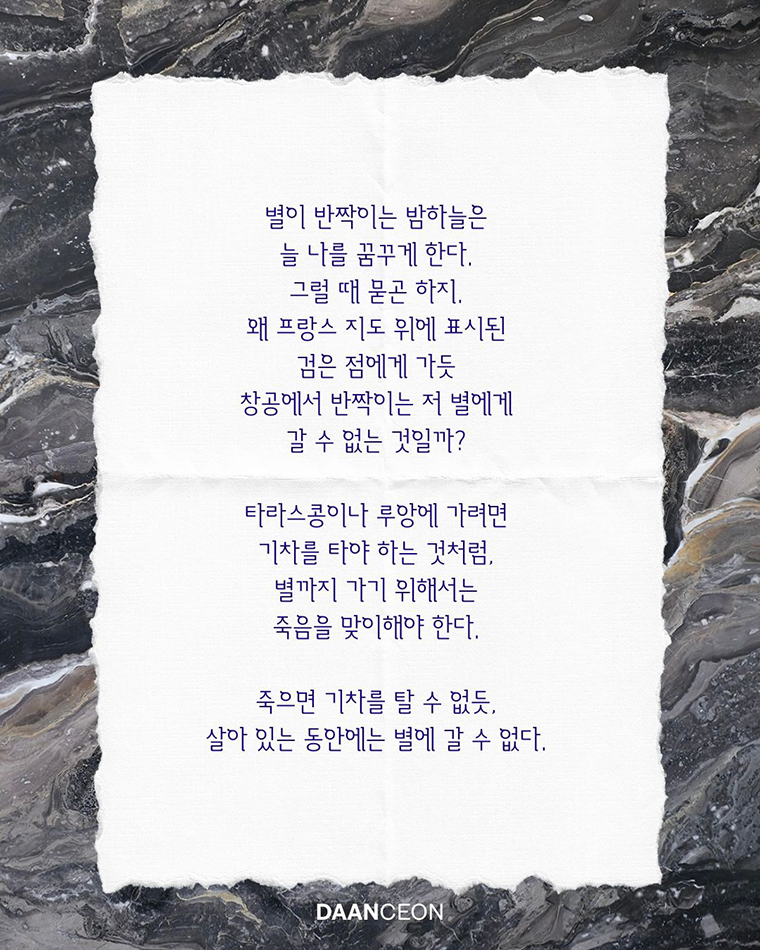 별이 반짝이는 밤하늘은
늘 나를 꿈꾸게 한다.
그럴 때 묻곤 하지.
왜 프랑스 지도 위에 표시된
검은 점에게 가듯
창공에서 반짝이는 저 별에게
갈 수 없는 것일까?
타라스콩이나 루앙에 가려면
기차를 타야 하는 것처럼,
별까지 가기 위해서는
죽음을 맞이해야 한다.
죽으면 기차를 탈 수 없듯,
살아 있는 동안에는 별에 갈 수 없다.
DAANCEON